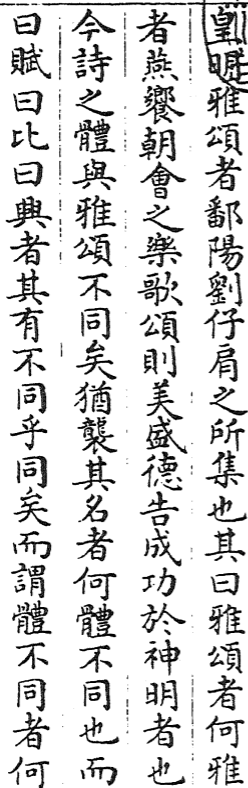 皇明雅頌者鄱陽劉仔肩之所集也其曰雅頌者何雅
者燕饗朝會之樂歌頌則美盛德告成功於神明者也
今詩之體與雅頌不同矣猶襲其名者何體不同也而
曰賦曰比曰興者其有不同乎同矣而謂體不同者何